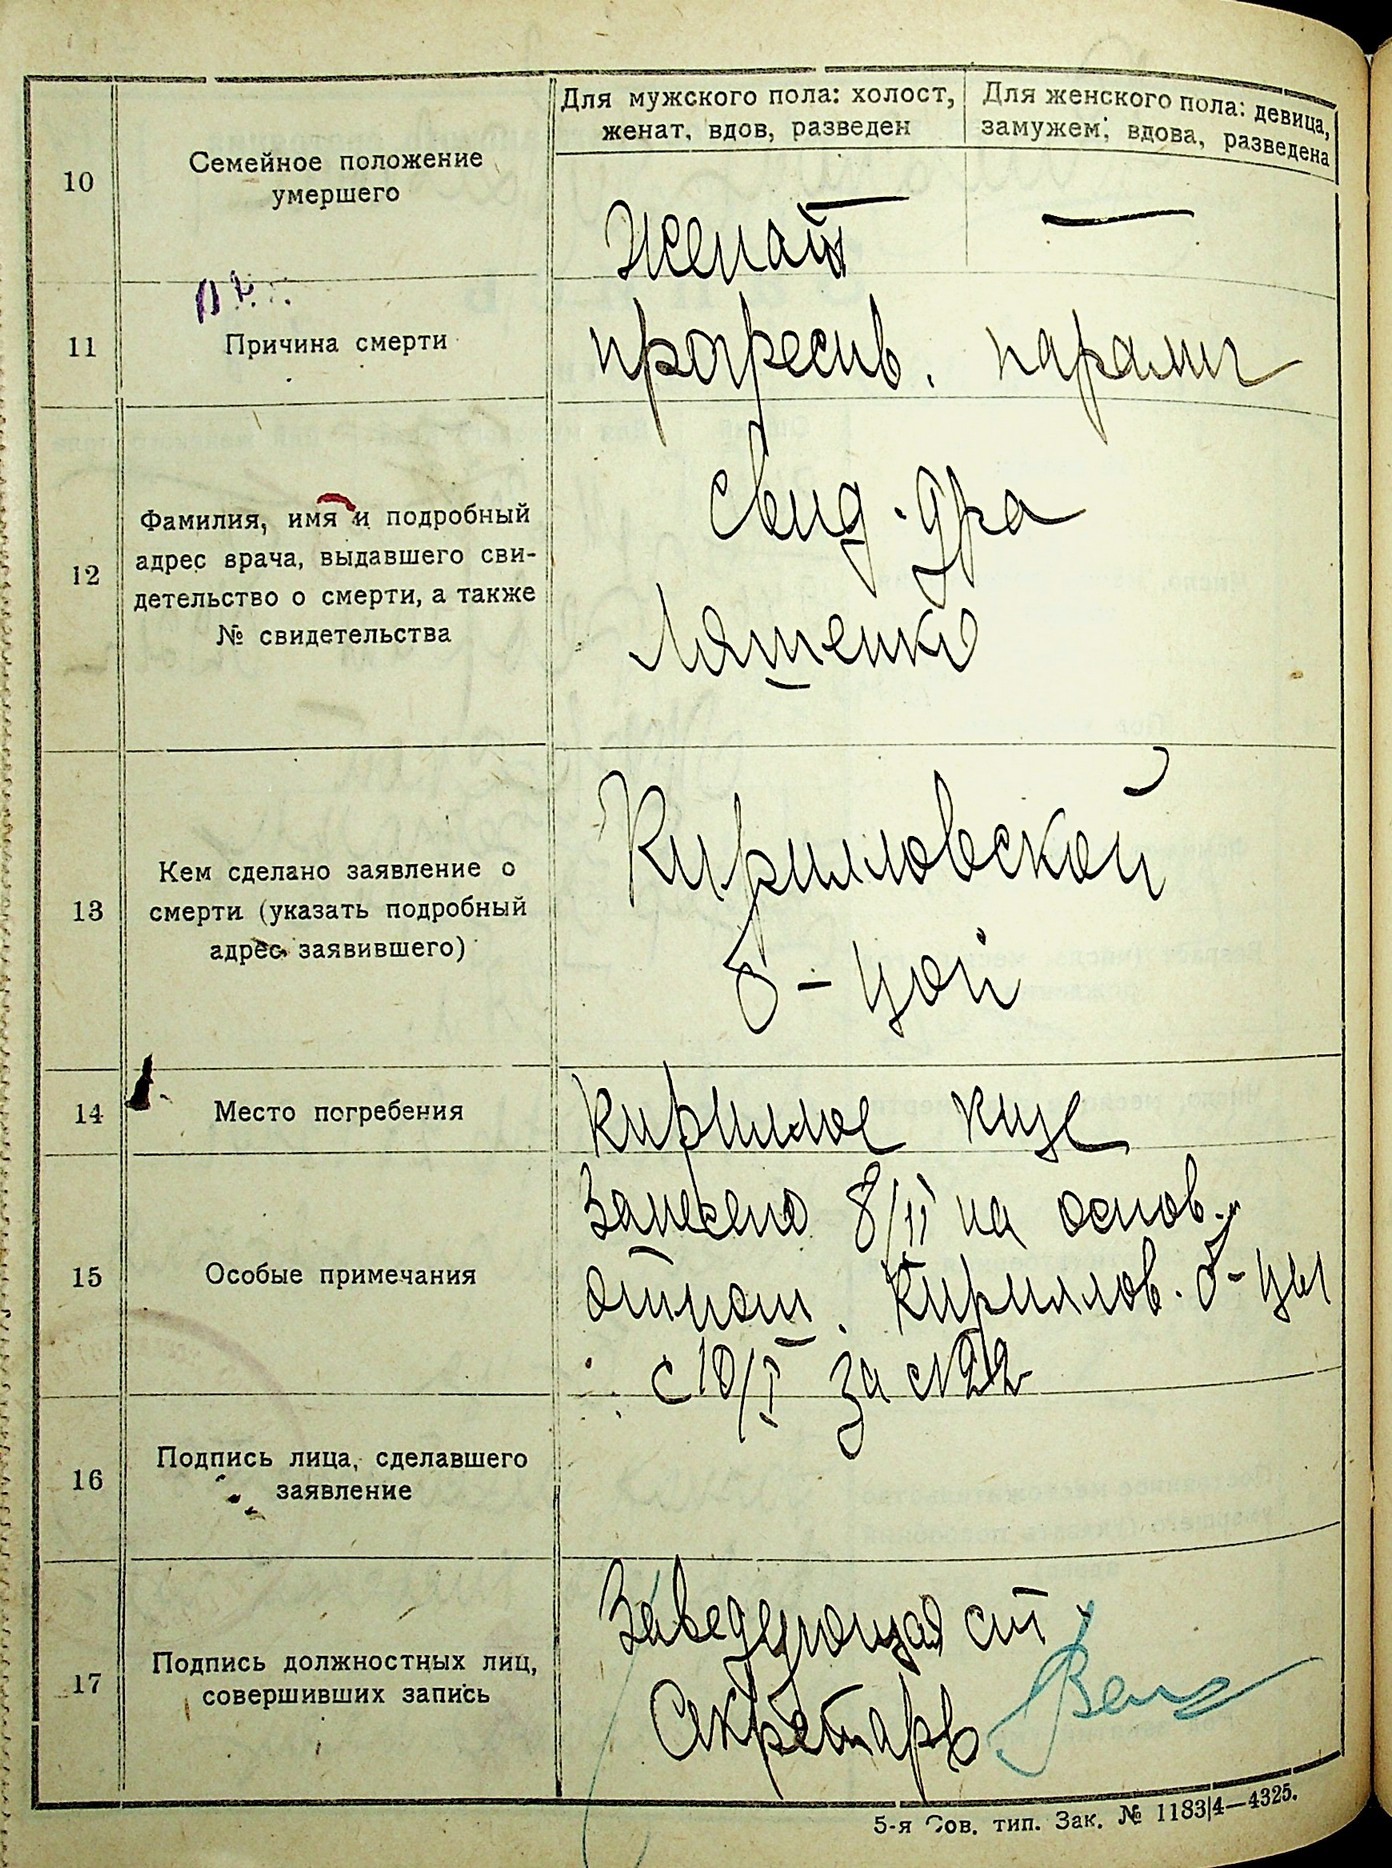 Для мужского пола: холост,
женат, вдов, разведен
Для женского пола: девица,
замужем, вдова, разведена
10
Семейное положение
умершего
Женат
—
11
Причина смерти
прогресив. паралич
12
Фамилия, имя и подробный
адрес врача, выдавшего сви-
детельство о смерти, а также
№ свидетельства
Свид. д-ра
Ляшенко
13
Кем сделано заявление о
смерти (указать подробный
адрес заявившего)
Кирилловской
б-цой
14
Место погребения
Кириллов
15
Особые примечания
Занесено 8/II на основ.
отнош. Кириллов. б-цы
с 10/I за №22
16
Подпись лица, сделавшего
заявление
17
Подпись должностных лиц,
совершивших запись
Заведующая ст
Секретарь
5-я Сов. тип. Зак. № 1183|4—4325.